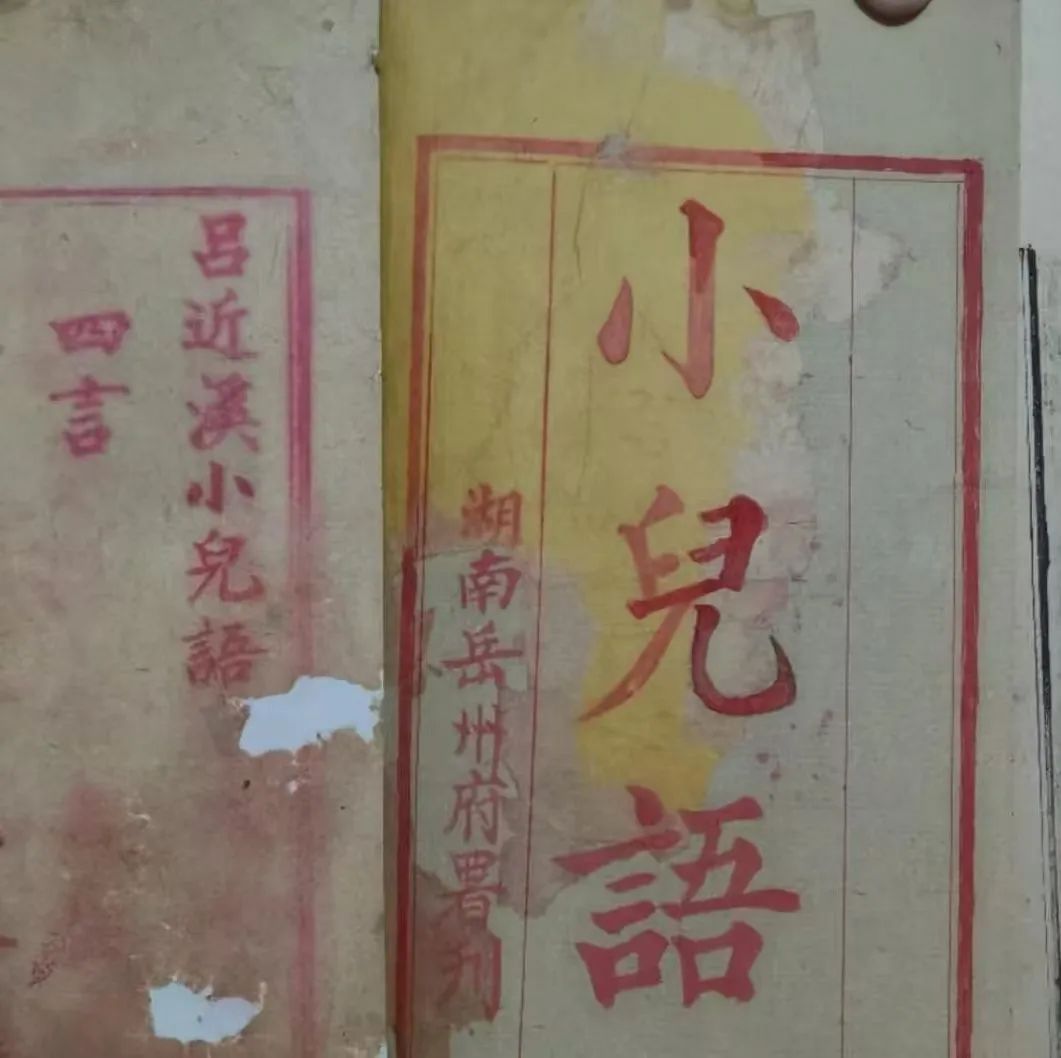 小兒語
湖南岳州府署刊
呂近溪小兒語
四言